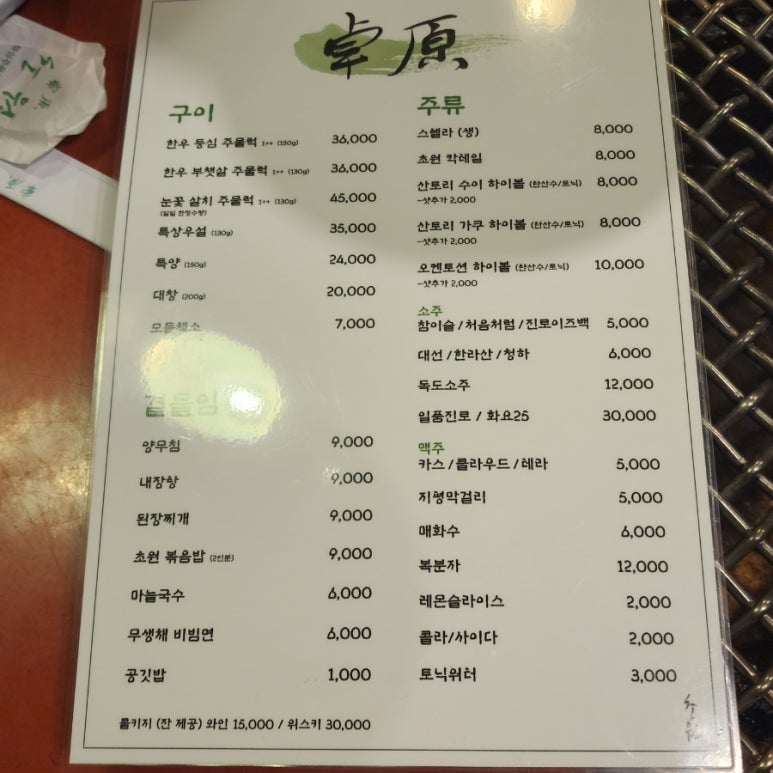 草原
구이
한우 등심 주물럭 1++ (150g) 36,000
한우 부챗살 주물럭 1++ (130g) 36,000
눈꽃 살치 주물럭 1++ (130g) 45,000
(일일 한정수량)
특상우설 (130g) 35,000
특양 (150g) 24,000
대창 (200g) 20,000
모듬채소 7,000
곁들임
양무침 9,000
내장탕 9,000
된장찌개 9,000
초원 볶음밥 (2인분) 9,000
마늘국수 6,000
무생채 비빔면 6,000
공깃밥 1,000
콜키지 (잔 제공) 와인 15,000 / 위스키 30,000
주류
스텔라 (생) 8,000
초원 칵테일 8,000
산토리 수이 하이볼 (탄산수/토닉) 8,000
-샷추가 2,000
산토리 가쿠 하이볼 (탄산수/토닉) 8,000
-샷추가 2,000
오켄토션 하이볼 (탄산수/토닉) 10,000
-샷추가 2,000
소주
참이슬/처음처럼/진로이즈백 5,000
대선/한라산/청하 6,000
독도소주 12,000
일품진로 / 화요25 30,000
맥주
카스/클라우드/테라 5,000
지평막걸리 5,000
매화수 6,000
복분자 12,000
레몬슬라이스 2,000
콜라/사이다 2,000
토닉워터 3,000
초원